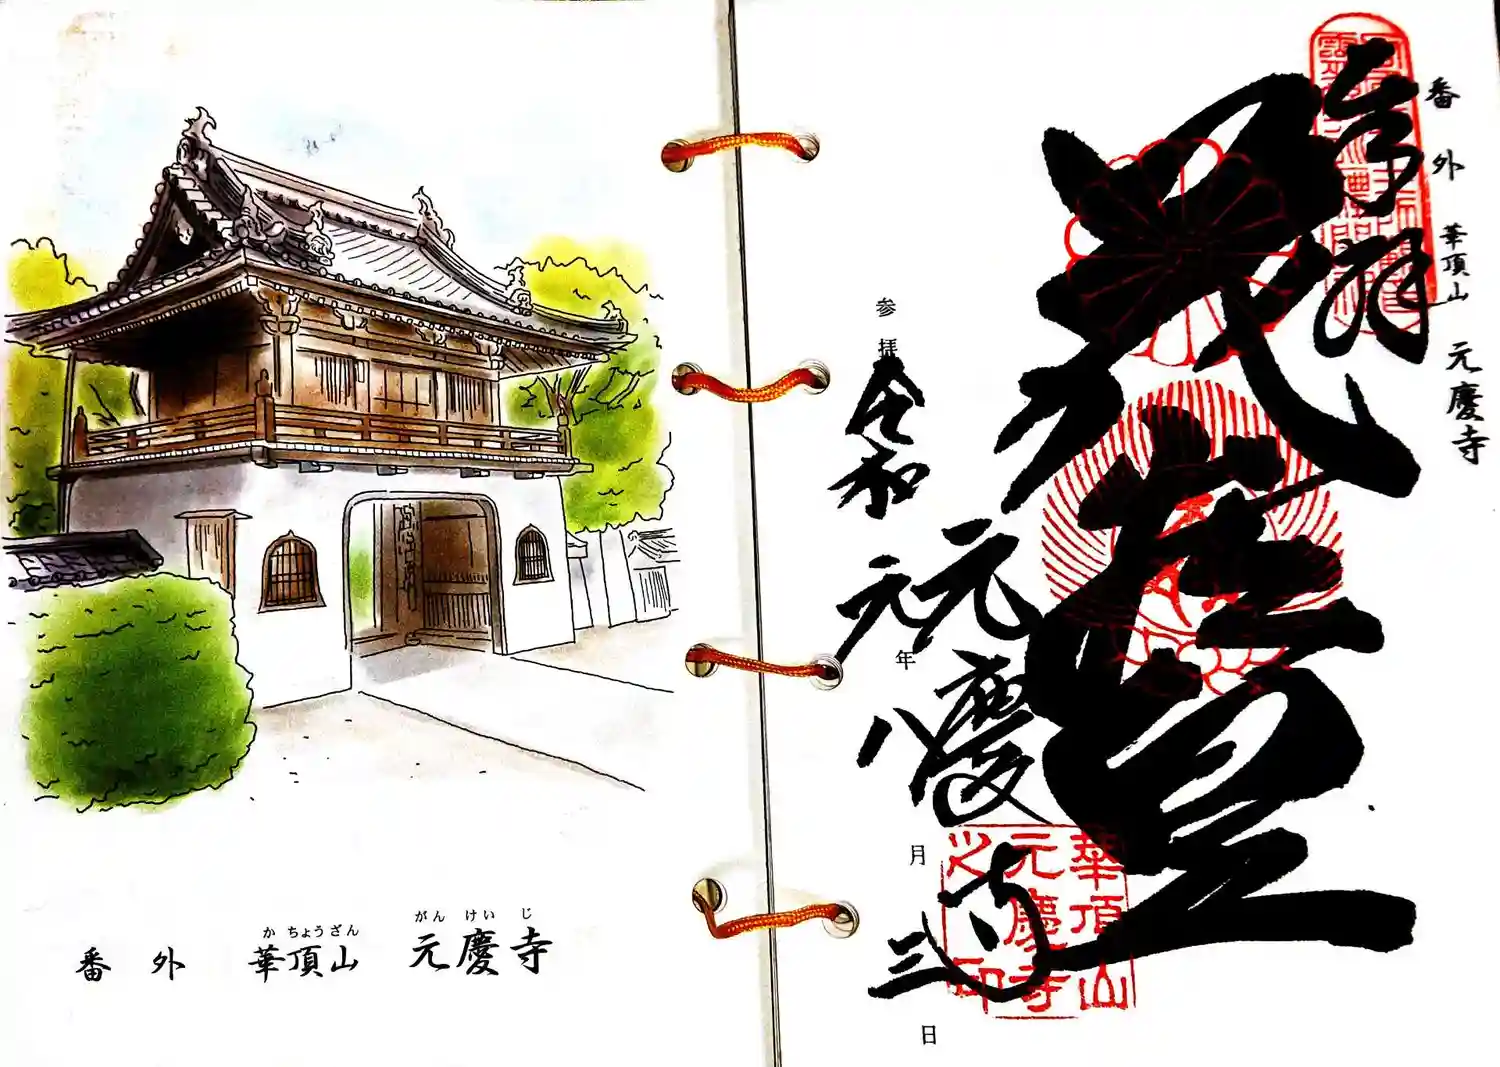 がん けい じ
か ちょうざん
番外 華頂山 元慶寺
番外 華頂山 元慶寺
奉拝
元慶寺
参拝 令和元年八月三日
華頂山
元慶寺
之印